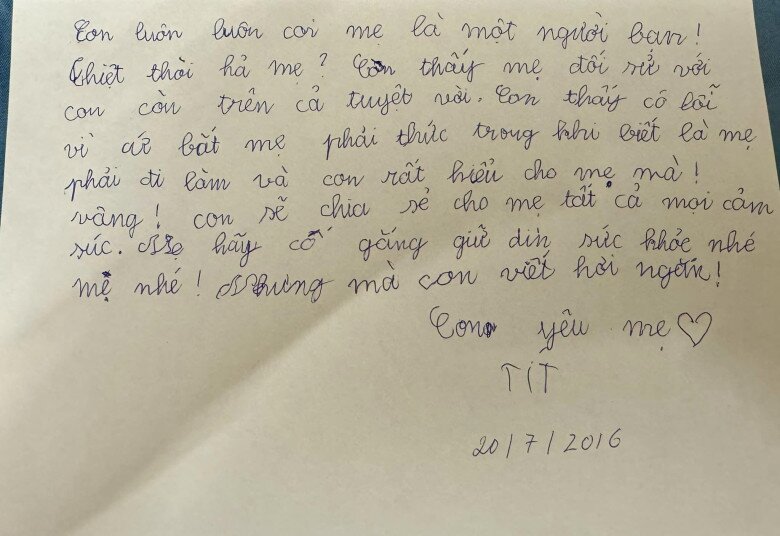 Con luôn luôn coi mẹ là một người bạn!
Thiệt thòi hả mẹ? Con thấy mẹ đối sử với
con còn trên cả tuyệt vời. Con thấy có lỗi
vì cứ bắt mẹ phải thức trong khi biết là mẹ
phải đi làm và con rất hiểu cho mẹ mà!
vâng! con sẽ chia sẻ cho mẹ tất cả mọi cảm
súc. Mẹ hãy cố gắng giữ dìn sức khỏe nhé
mẹ nhé! Nhưng mà con viết hơi ngắn!
Con yêu mẹ ♡
TÍT
20/7/2016